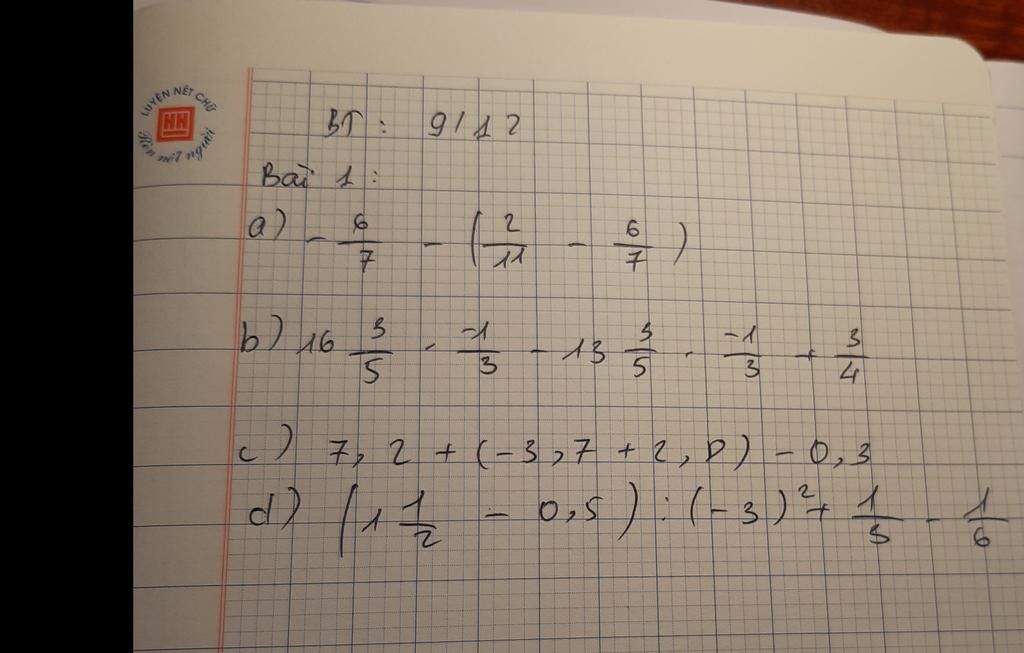 LUYỆN NẾT CHỮ
HN
Rèn nết người
BT : 9/12
Bài 1 :
a) - 6/7 - (2/11 - 6/7)
b) 16 3/5 . -1/3 - 13 3/5 . -1/3 + 3/4
c) 7,2 + (-3,7 + 2,8) - 0,3
d) (1 1/2 - 0,5) : (-3)² + 1/3 - 1/6